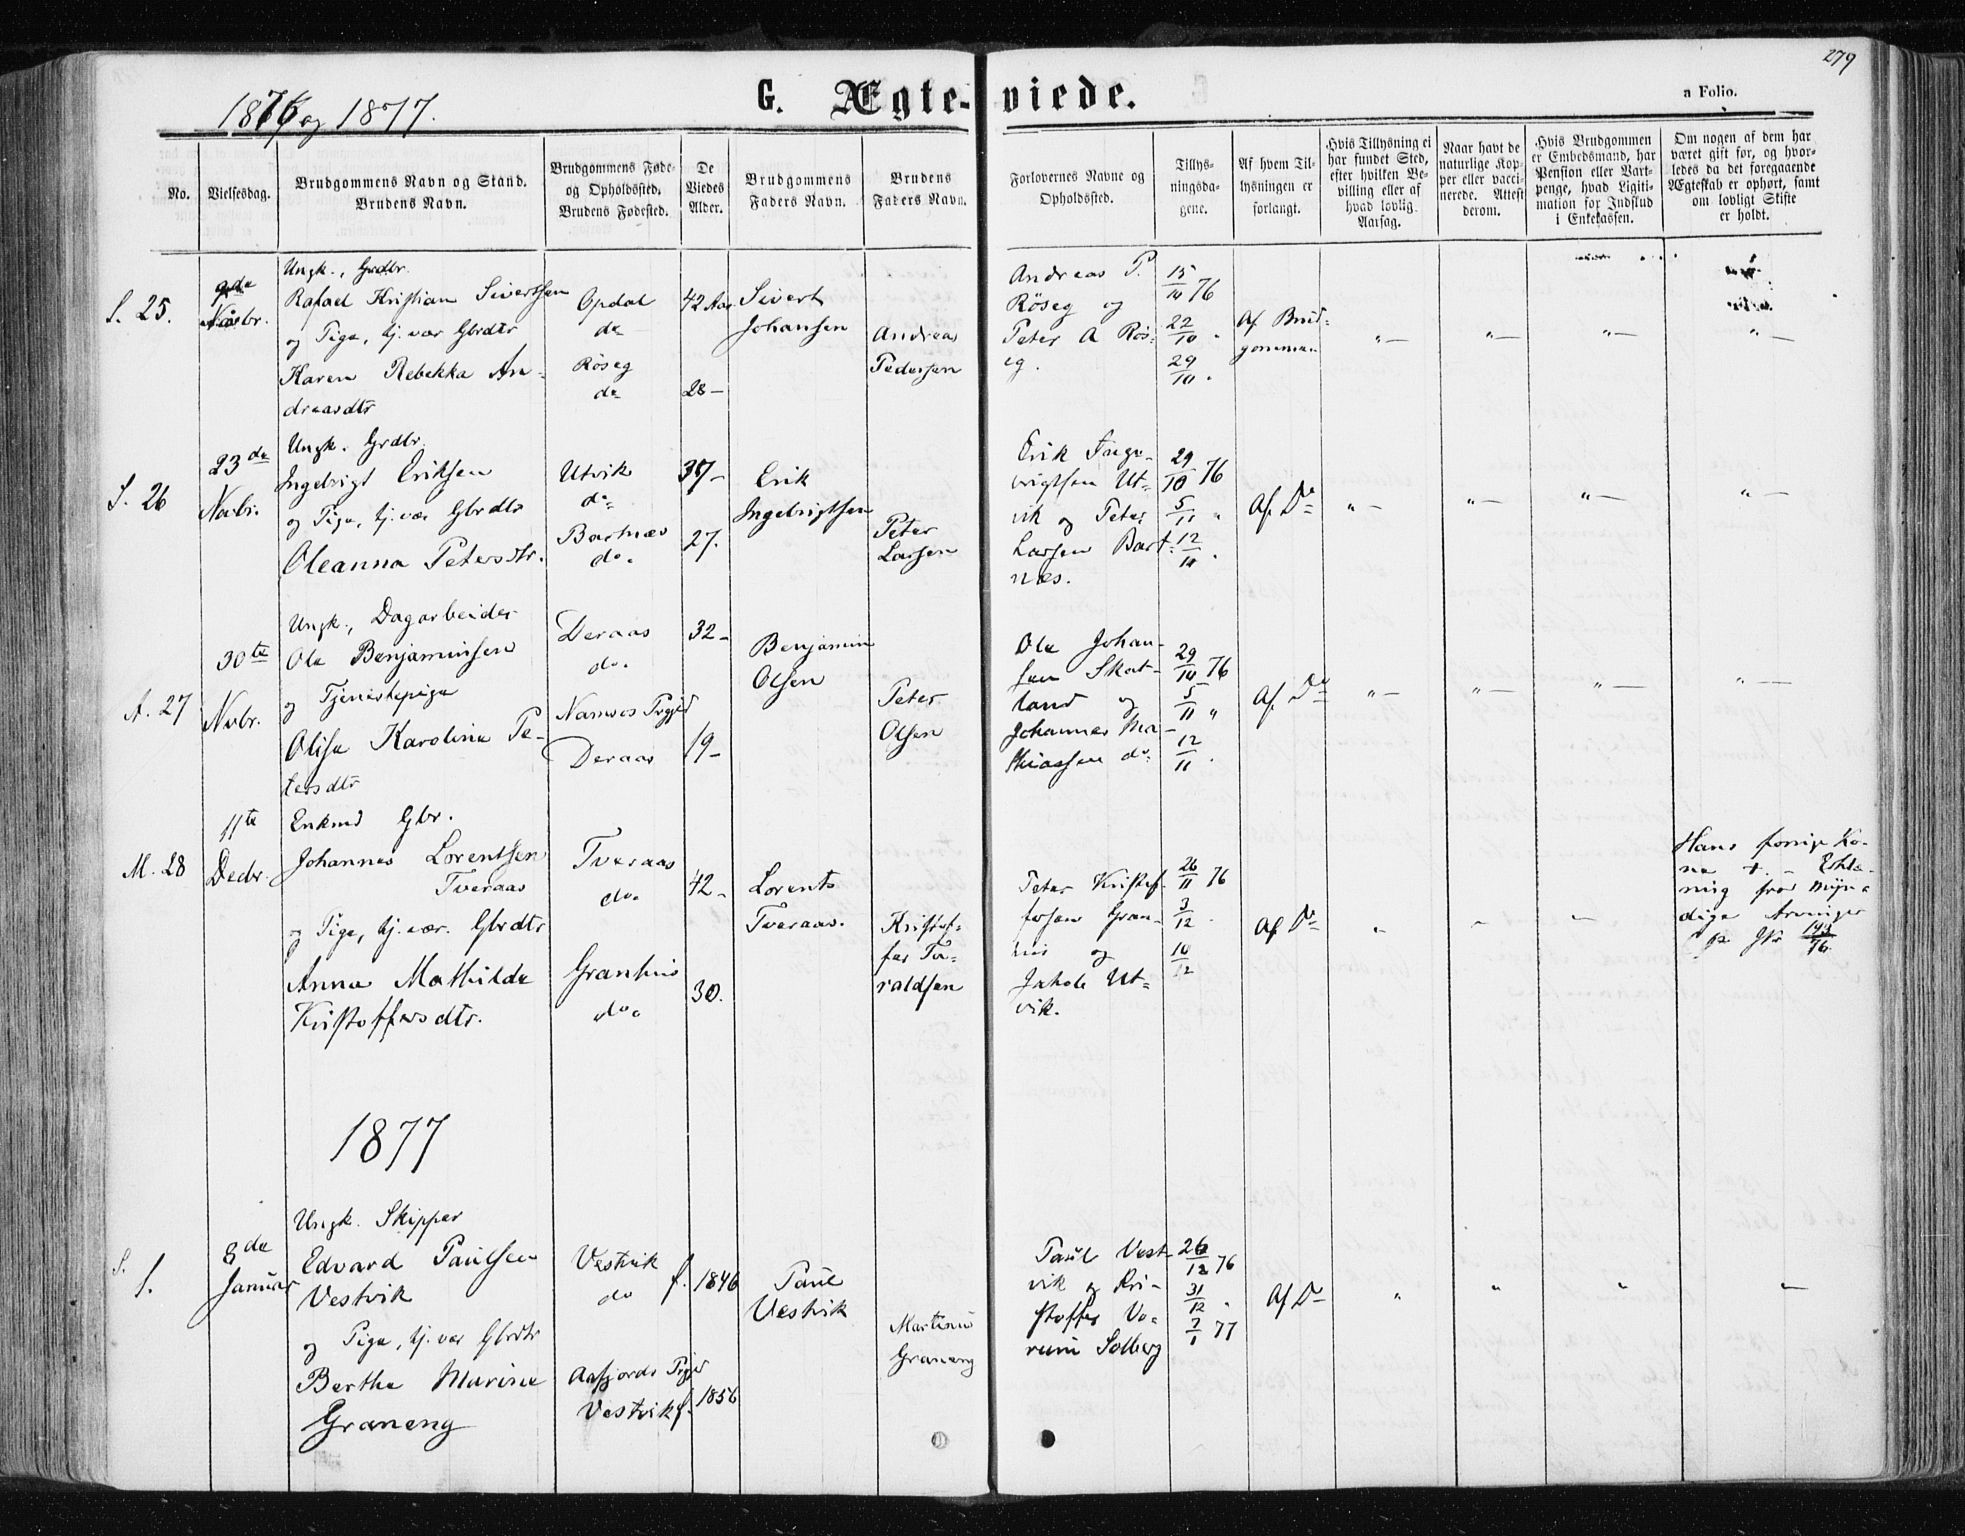 279
1876 og 1877.
G. Ægte-viede.
a Folio.
No.
Vielsesdag.
Brudgommens Navn og Stand.
Brudens Navn.
Brudgommens Føde-
og Opholdssted.
Brudens Fødested.
De
Viedes
Alder.
Brudgommens
Faders Navn.
Brudens
Faders Navn.
Forlovernes Navne og
Opholdssted.
Tillys-
ningsda-
gene.
Af hvem Til-
lysningen er
forlangt.
Hvis Tillysning ei
har fundet Sted,
efter hvilken Be-
villing eller af
hvad lovlig
Aarsag.
Naar havt de
naturlige Kop-
per eller vacci-
nerede. Attest
derom.
Hvis Brudgommen
er Embedsmand, har
Pension eller Vart-
penge, hvad Ligiti-
mation for Indskud
i Enkekassen.
Om nogen af dem har
været gift før, og hvor-
ledes da det foregaaende
Ægteskab er ophørt, samt
om lovligt Skifte
er holdt.
S. 25.
9de
Novbr.
Ungk., Grdbr.
Rafael Kristian Sivertsen
og Pige, hj. vær Gbrdtr
Karen Rebekka An-
dreasdtr
Opdal
do
Røseg
do
42 Aar
28 -
Sivert
Johansen
Andreas
Pedersen
Andreas P.
Røseg og
Peter A Røs-
eg.
15/10 76
22/10 "
29/10 .
Af Brud-
gommen
" -
" -
" -
" -
S. 26
23de
Novbr.
Ungk. Grdbr.
Ingebrigt Eriksen
og Pige, hj. vær Gbrdtr
Oleanna Petersdtr.
Utvik
do
Bartnæs
do.
37 -
27.
Erik
Ingebrigtsen
Peter
Larsen
Erik Inge-
brigtsen Ut-
vik og Peter
Larsen Bart-
næs.
29/10 76
5/11 "
12/11 .
Af Do
" -
" -
" -
" -
A. 27
30te
Novbr.
Ungk., Dagarbeider
Ole Benjaminsen
og Tjenestepige
Olise Karoline Pe-
tersdtr
Deraas
do.
Namsos Prgjld
Deraas
32 -
19 -
Benjamin
Olsen
Peter
Olsen
Ole Johan-
sen Skat-
land og
Johannes Ma-
thiassen do
29/10 76
5/11 "
12/11 .
Af Do
" -
" -
" -
" -
M. 28
11te
Decbr.
Enkmd Gbr.
Johannes Lorentsen
Tveraas
og Pige, hj. vær. Gbrdtr
Anna Mathilde
Kristoffersdtr.
Tveraas
do.
Granhus
do.
42 -
30.
Lorents
Tveraas.
Kristof-
fer To-
raldsen
Peter Kristof-
fersen Gran-
hus og
Jakob Ut-
vik.
26/11 76
3/12 .
10/12
Af Do
Hans forrige Ko-
ne †. - Erklæ-
ring fra Myn-
dige Arvinger
1877
S. 1.
8de
Januar
Ungk. Skipper
Edvard Paulsen
Vestvik
og Pige, hj. vær Gbrdtr
Berthe Marine
Graneng
Vestvik
do
Aafjords Prgjld
Vestvik
f. 1846
f. 1856
Paul
Vestvik
Martinus
Graneng
Paul Vest-
vik og Kri-
stoffer Vo-
rum Solberg
26/12 76
31/12 "
7/1 77
Af Do
"
"
"
-